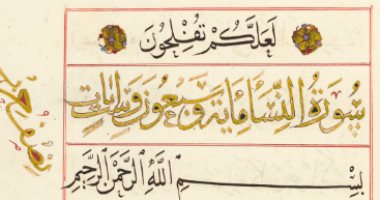 لَعَلَّكُمْ تُفْلِحُونَ
سُورَةُ النِّسَاءِ مِائَة وَسَبْعُونَ وَ آيَات
بِسْمِ اللَّهِ الرَّحْمَنِ الرَّحِيمِ